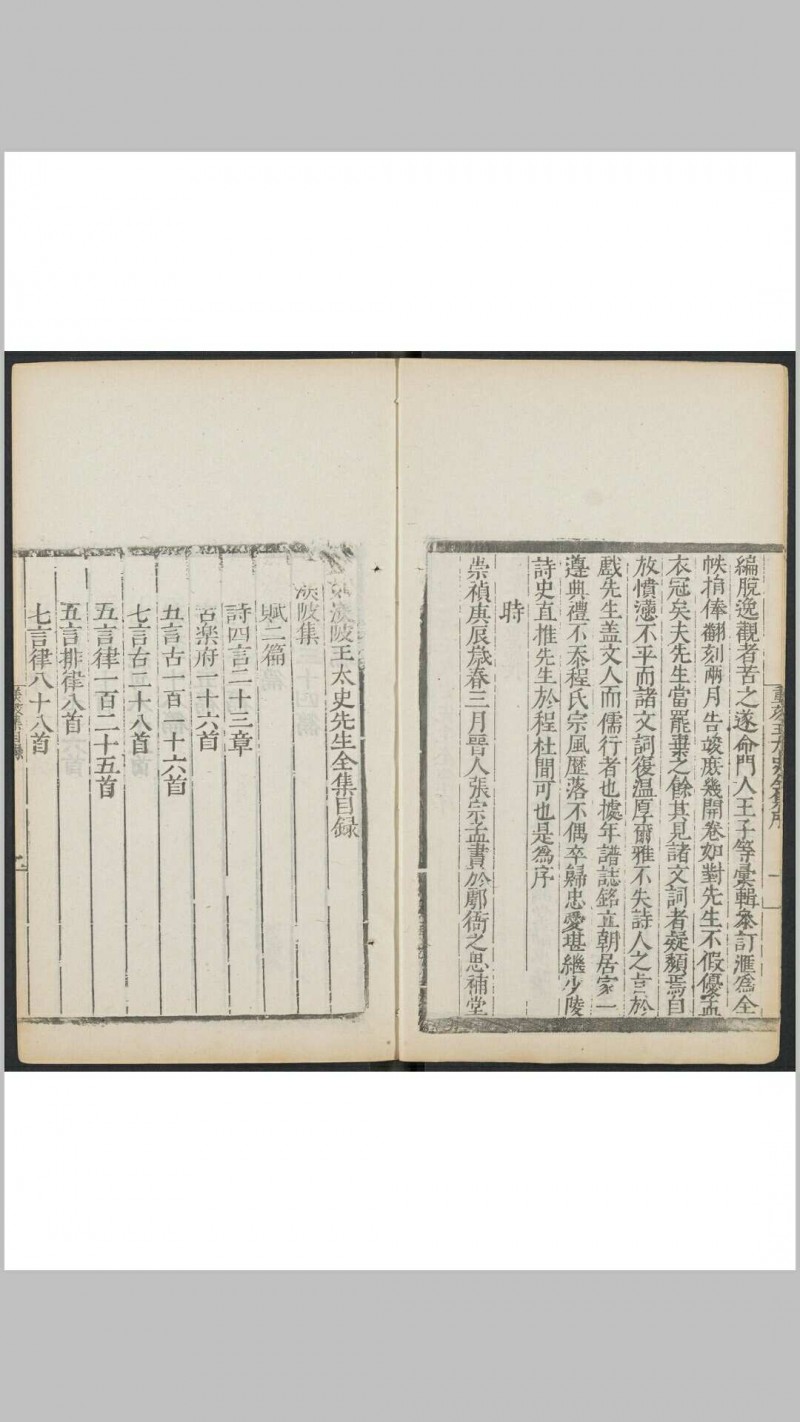 編脫逸觀者苦之遂命門人王子等彙輯參訂滙爲全
帙捐俸翻刻兩月告竣庶幾開卷如對先生不假優孟
衣冠矣夫先生當罷棄之餘其見諸文詞者疑頹焉自
放憤懣不平而諸文詞復溫厚爾雅不失詩人之旨於
戲先生盖文人而儒行者也據年譜誌銘立朝居家一
遵典禮不忝程氏宗風歷落不偶卒歸忠愛堪繼少陵
詩史直推先生於程杜間可也是爲序
時
崇禎庚辰歲春三月晉人張宗孟書於鄠衙之思補堂
重刻王太史全集序
一
渼陂王太史先生全集目録
渼陂集
賦二篇
詩四言二十三章
古楽府一十六首
五言古一百一十六首
七言古二十八首
五言律一百二十五首
五言排律八首
七言律八十八首